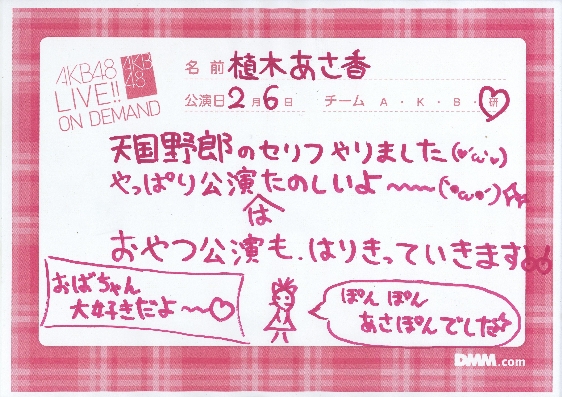 AKB48
LIVE!!
ON DEMAND
AKB
48
名前 植木あさ香
公演日 2月6日 チーム A・K・B・研
天国野郎のセリフやりました(♥'ω'♥)
やっぱり公演はたのしいよ〜〜(*•ω•*)☆☆
おやつ公演も、はりきっていきます♪♪
おばちゃん
大好きだよ〜♡
ぽんぽん
あさぽんでした☆
DMM.com